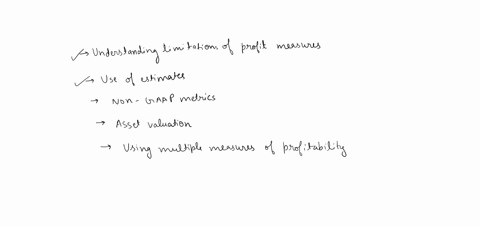 ✓→ Understanding limitations of profit measures
✓→ Use of estimates
→ Non-GAAP metrics
→ Asset valuation
→ Using multiple measures of profitability